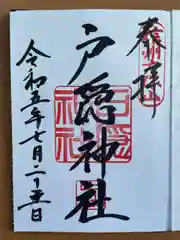 奉拝
戸隠神社
令和五年七月二十五日